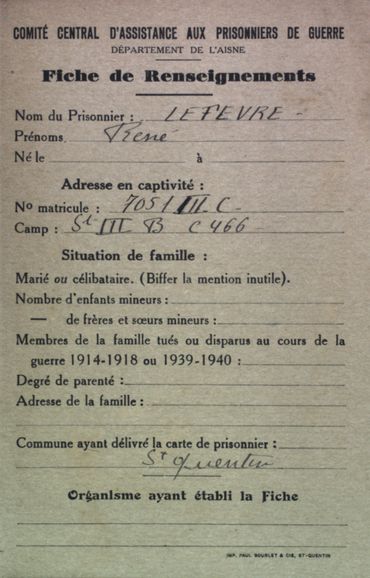 COMITÉ CENTRAL D'ASSISTANCE AUX PRISONNIERS DE GUERRE
DÉPARTEMENT DE L'AISNE
Fiche de Renseignements
Nom du Prisonnier : LEFEVRE -
Prénoms René
Né le à
Adresse en captivité :
No matricule : 7051 III C -
Camp : St III B C 466 -
Situation de famille :
Marié ou célibataire. (Biffer la mention inutile).
Nombre d'enfants mineurs :
— de frères et sœurs mineurs :
Membres de la famille tués ou disparus au cours de la
guerre 1914-1918 ou 1939-1940 :
Degré de parenté :
Adresse de la famille :
Commune ayant délivré la carte de prisonnier :
St Quentin
Organisme ayant établi la Fiche
IMP. PAUL BOURLET & CIE, ST-QUENTIN